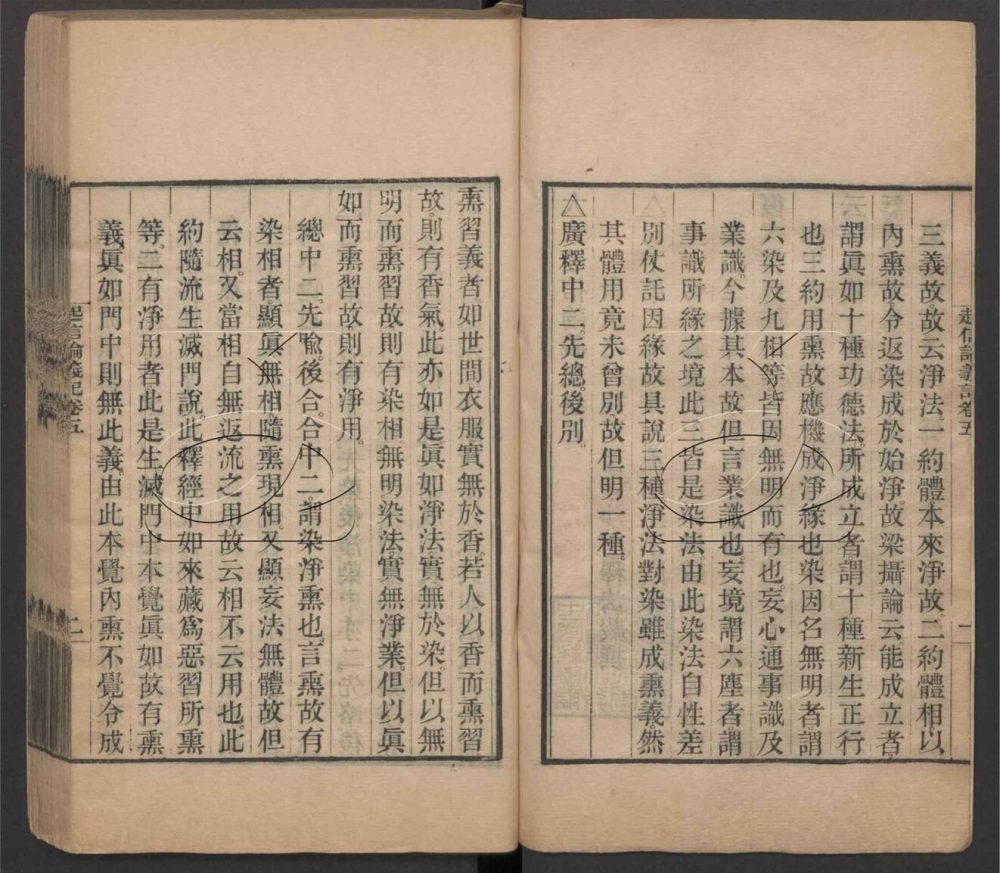 起信論義記卷五
一
三義故。故云淨法一約體本來淨故。二約體相。以
內熏故。令返染成於始淨故梁攝論云能成立者。
謂眞如十種功德法。所成立者謂十種新生正行
也三約用熏故應機成淨緣也染因名無明者謂
六染及九相等皆因無明而有也妄心通事識及
業識。今據其本故但言業識也妄境謂六塵者謂
事識所緣之境此三皆是染法由此染法自性差
別仗託因緣故具說三種淨法對染雖成熏義然
其體用竟未曾別故但明一種。
△廣釋中二。先總。後別。
熏習義者。如世間衣服實無於香。若人以香而熏習
故。則有香氣此亦如是眞如淨法實無於染。但以無
明而熏習故則有染相無明染法實無淨業。但以眞
如而熏習故則有淨用。
總中二。先喻。後合。合中二。謂染淨熏也。言熏故有
染相者顯眞無相。隨熏現相。又顯妄法無體故但
云相。又當相自無返流之用。故云相不云用也。此
約隨流生滅門說。此釋經中如來藏爲惡習所熏
等。二有淨用者此是生滅門中本覺眞如故有熏
義眞如門中則無此義。由此本覺內熏不覺令成
起信論義記卷五
二